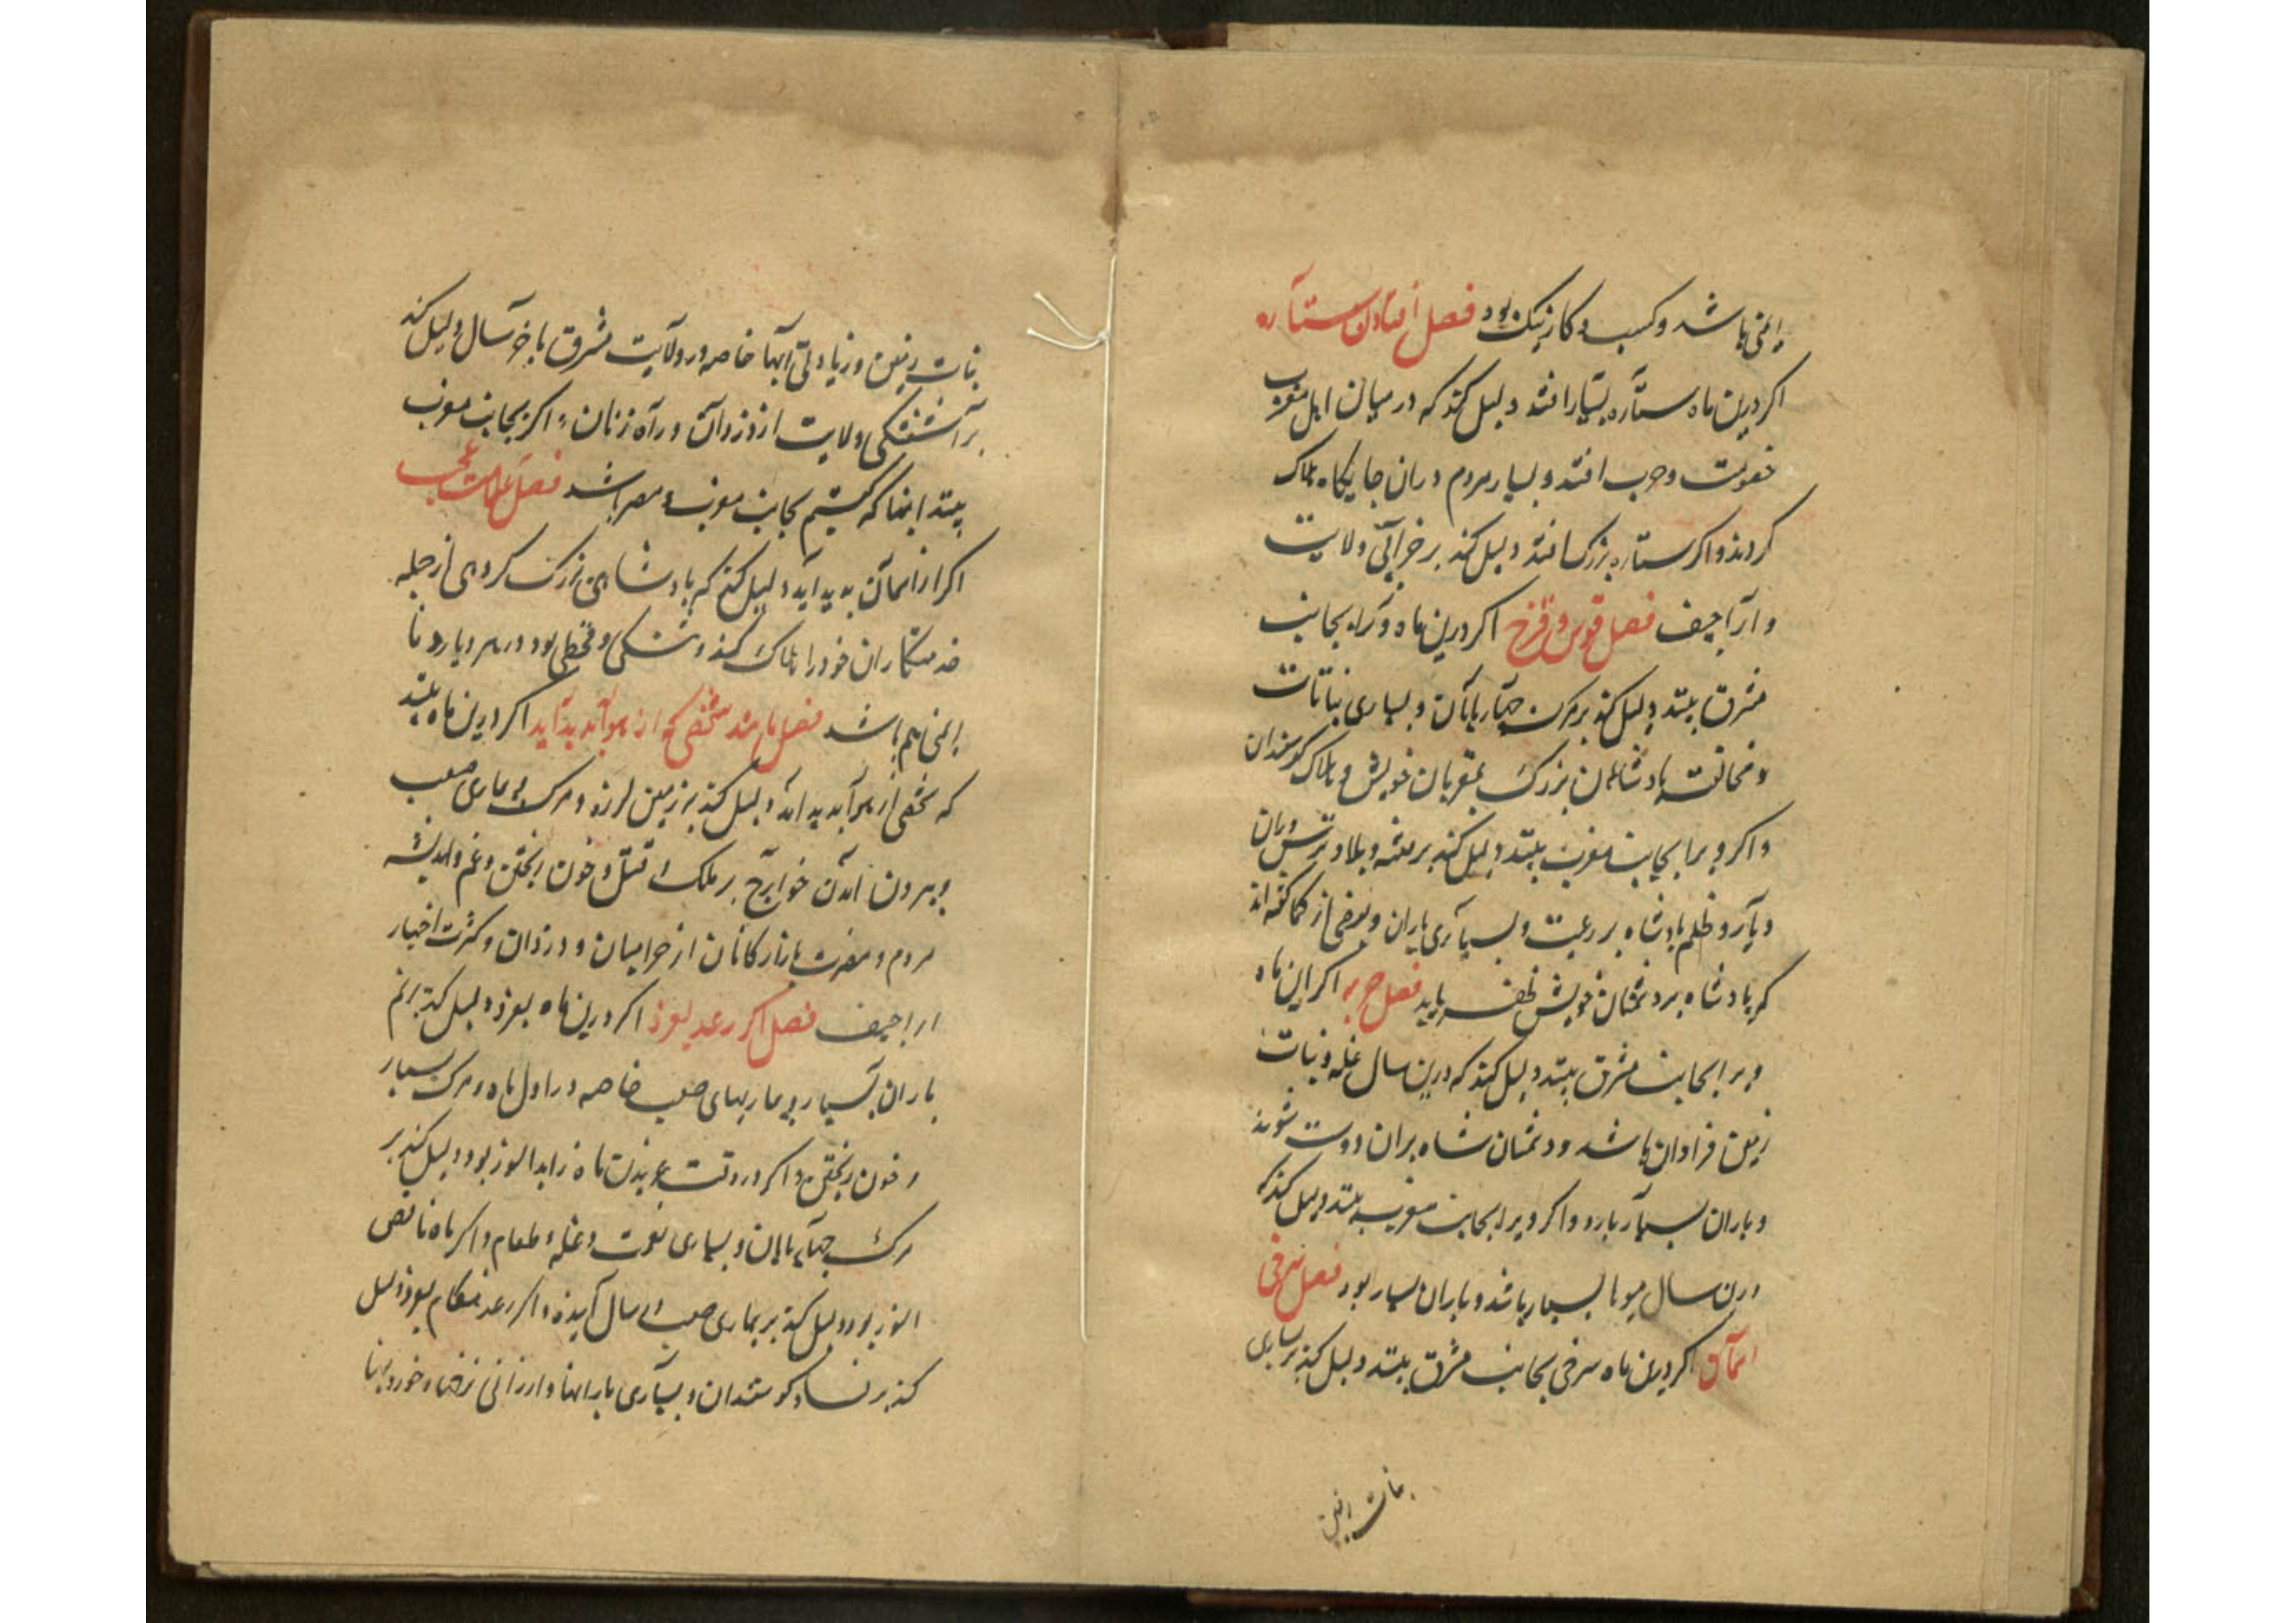 ایمنی باشد و کسب و کار نیک بود فصل افتادن ستاره
اکر درین ماه ستاره بسیار افتد دلیل کند که در میان اهل مغرب
خصومت و حرب افتد و بسیار مردم دران جایکاه هلاک
کردند و اکر ستاره بزرک افتد دلیل کند بر خرابی ولایت
و اراجیف فصل قوس و قزح اکر درین ماه ویرا بجانب
مشرق بیند دلیل کند بر مرک چهارپایان و بسیاری نباتات
و مخالفت پادشاهان بزرک بمقربان خویش و هلاک کوسفندان
و اکر ویرا بجانب مغرب بیند دلیل کند بر فتنه و بلا و
و ظلم پادشاه بر رعیت و بسیاری باران و بعضی از حکما کفته اند
که پادشاه بر دشمنان خویش ظفر یابد فصل اکر این ماه
ویرا بجانب مشرق بیند دلیل کند که درین سال غله و نبات
زمین فراوان باشد و دشمنان شاه بران دوست شوند
و باران بسیار بارد و اکر ویرا بجانب مغرب بیند دلیل کند که
درین سال میوها بسیار باشد و باران بسیار بود فصل سرخی
اکر درین ماه سرخی بجانب مشرق بیند دلیل کند بر بسیاری
نبات زمین
نبات زمین و زیادتی آبها خاصه در ولایت مشرق باخر سال دلیل کند
بر آشفتکی ولایت از دزدان و راه زنان اکر بجانب مغرب
بیند اینها که کفتیم بجانب مغرب و مصر باشد فصل علامت عجب
اکر از آسمان پدید آید دلیل کند که پادشاهی بزرک کروهی از جمله
خدمتکاران خود را هلاک کند و تنکی و قحطی بود در هر دیار و نا
ایمنی هم باشد فصل مانند شخصی که از هوا پدید آید اکر درین ماه بیند
که شخصی از هوا پدید آید دلیل کند بر زمین لرزه و مرک و بیماری صعب
و بیرون آمدن خوارج بر ملک و قتل و خون ریختن و غم و اندیشه
مردم و مضرت بازارکانان از حرامیان و دزدان و کثرت اخبار
اراجیف فصل اکر رعد بغرد اکر درین ماه بغرد دلیل کند بر غم
باران بسیار و بیماریهای صعب خاصه در اول ماه و مرک بسیار
و خون ریختن و اکر در وقت غریدن ماه زاید النور بود دلیل کند بر
مرک چهارپایان و بسیاری قوت و غله و طعام و اکر ماه ناقص
النور بود دلیل کند بر بیماری صعب و سال آینده و اکر رعد بغرد دلیل
کند بر فساد کوسفندان و بسیاری بارانها و ارزانی نرخها و خوردنیها